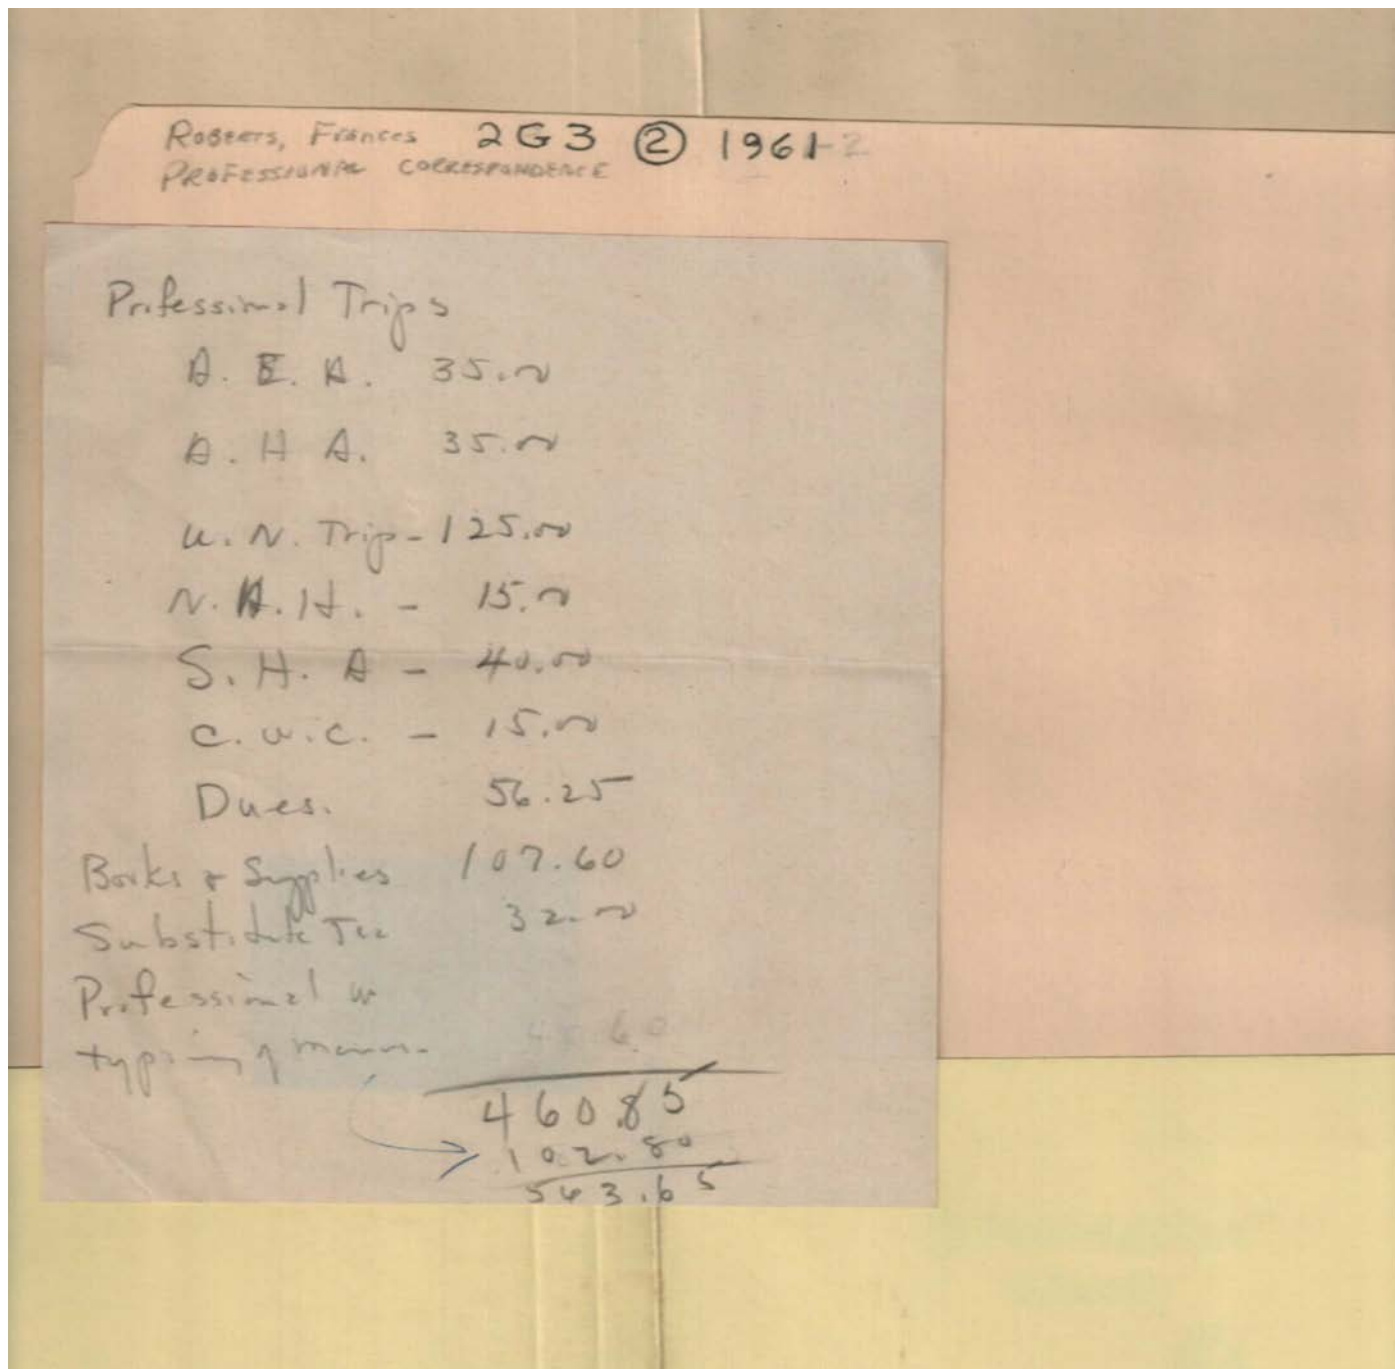 Roberts, Frances 2G3 ② 1961-2
PROFESSIONAL CORRESPONDENCE
Professional Trips
A. E. A. 35.00
A. H A. 35.00
U. N. Trip - 125.00
N. A. H. - 15.00
S. H. A - 40.00
C. W. C. - 15.00
Dues. 56.25
Books & Supplies 107.60
Substitute 32.00
Professional
typing of
460.85
102.80
563.65